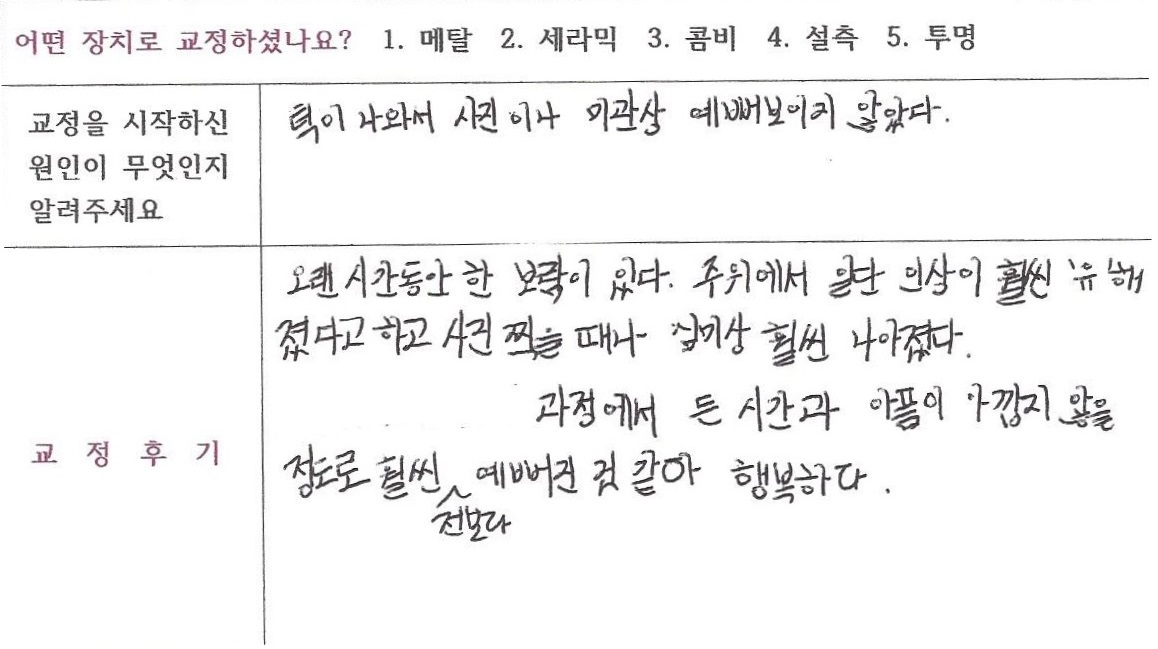 어떤 장치로 교정하셨나요? 1. 메탈 2. 세라믹 3. 콤비 4. 설측 5. 투명
교정을 시작하신
원인이 무엇인지
알려주세요
턱이 나와서 사진이나 미관상 예뻐보이지 않았다.
교 정 후 기
오랜 시간동안 한 보람이 있다. 주위에서 일단 인상이 훨씬 '유'해
졌다고 하고 사진 찍을 때나 심미상 훨씬 나아졌다.
과정에서 든 시간과 아픔이 아깝지 않을
정도로 훨씬 전보다 예뻐진 것 같아 행복하다.